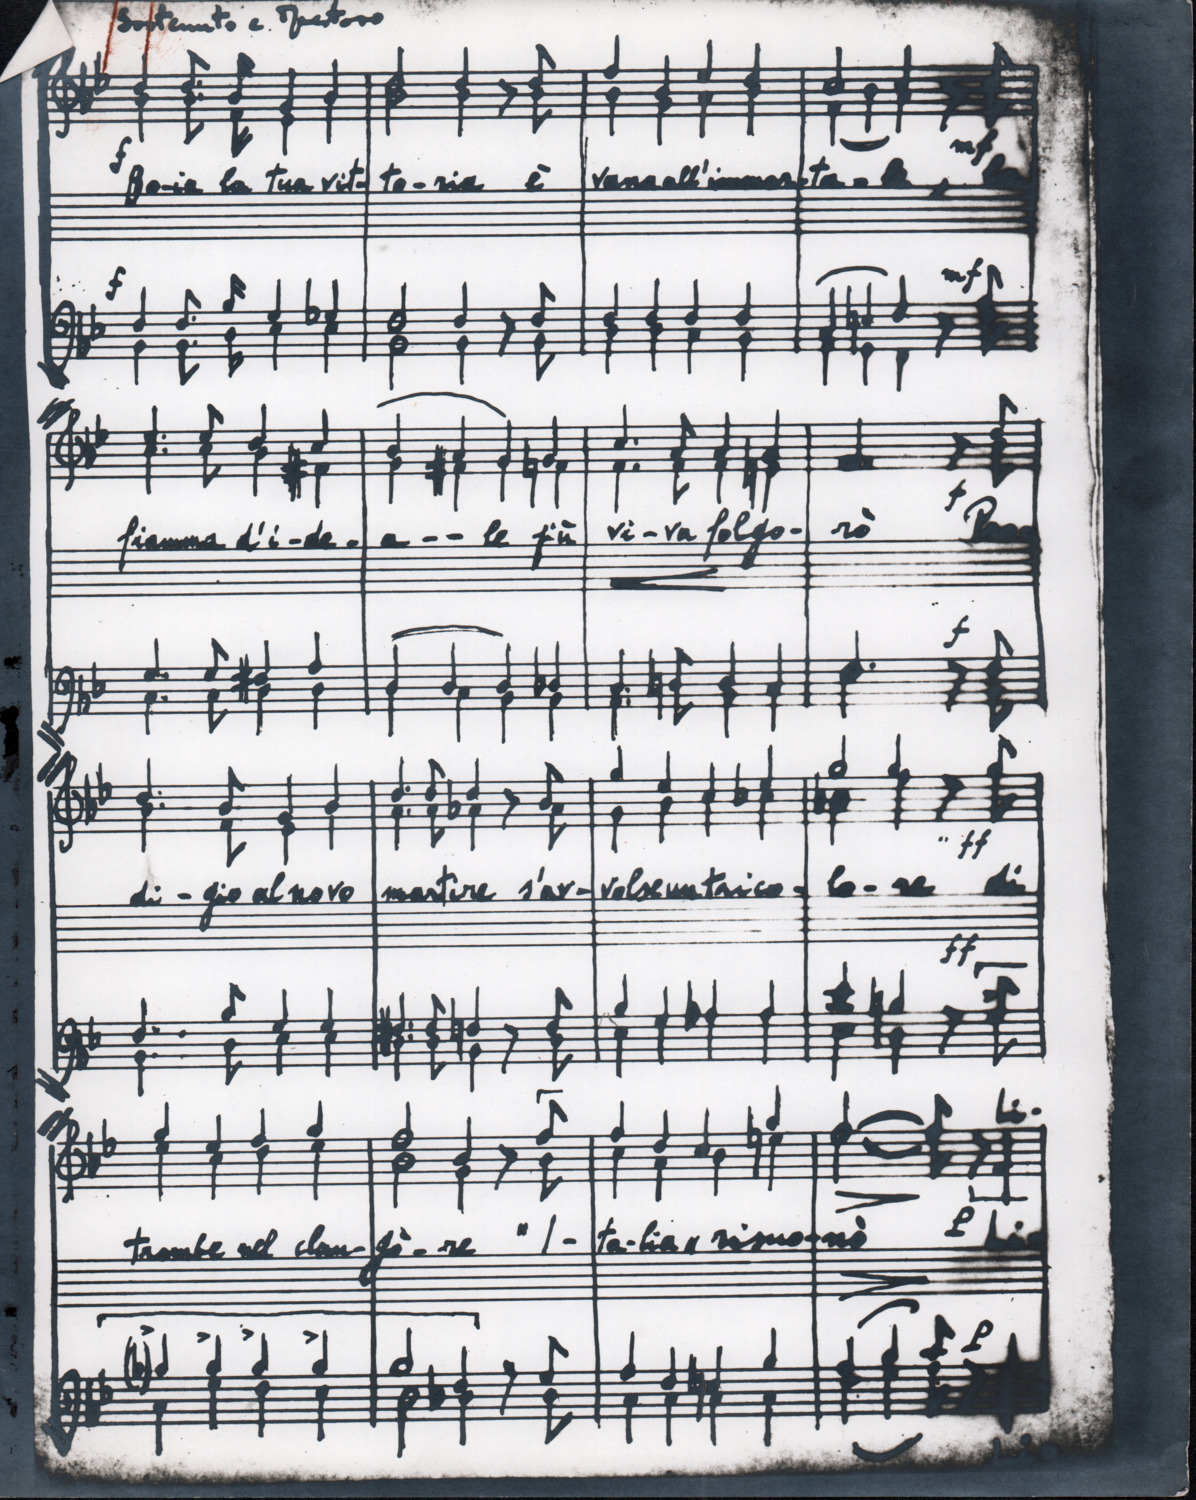 Sostenuto e Maestoso
f
mf
Bo-ia la tua vit-to-ria è vana all'immor-ta-le, la
f
mf
f
fiamma d'i-de-a--le più vi-va folgo-rò
f
ff
di-gio al novo martire s'av-volse un trico-lo-re di
ff
Li-
p
trombe nel clan-gò-re "I-ta-lia" risuo-nò
p